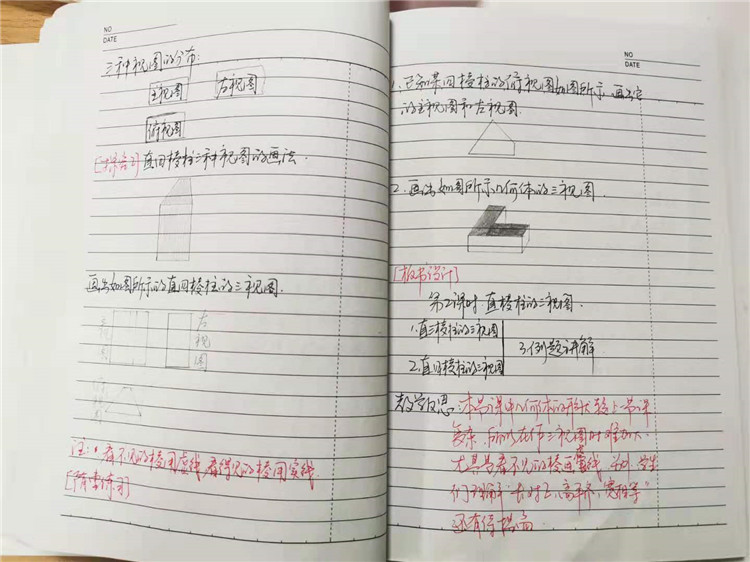 NO
DATE
三种视图的分布:
主视图
左视图
俯视图
[探究2]直四棱柱三种视图的画法.
画出如图所示的直四棱柱的三视图.
主视图
左视图
俯视图
注:看不见的棱用虚线,看得见的棱用实线
[随堂练习]
NO
DATE
1.已知某四棱柱的俯视图如图所示,画出它
的主视图和左视图.
2.画出如图所示几何体的三视图.
[板书设计]
第2课时 直棱柱的三视图.
1.直三棱柱的三视图
2.直四棱柱的三视图
3.例题讲解
教学反思:本节课中几何体的形状较上节课
复杂,所以在作三视图时难加大.
尤其是看不见的棱画虚线.另外,学生
们理解"长对正,高平齐,宽相等"
还有待提高.